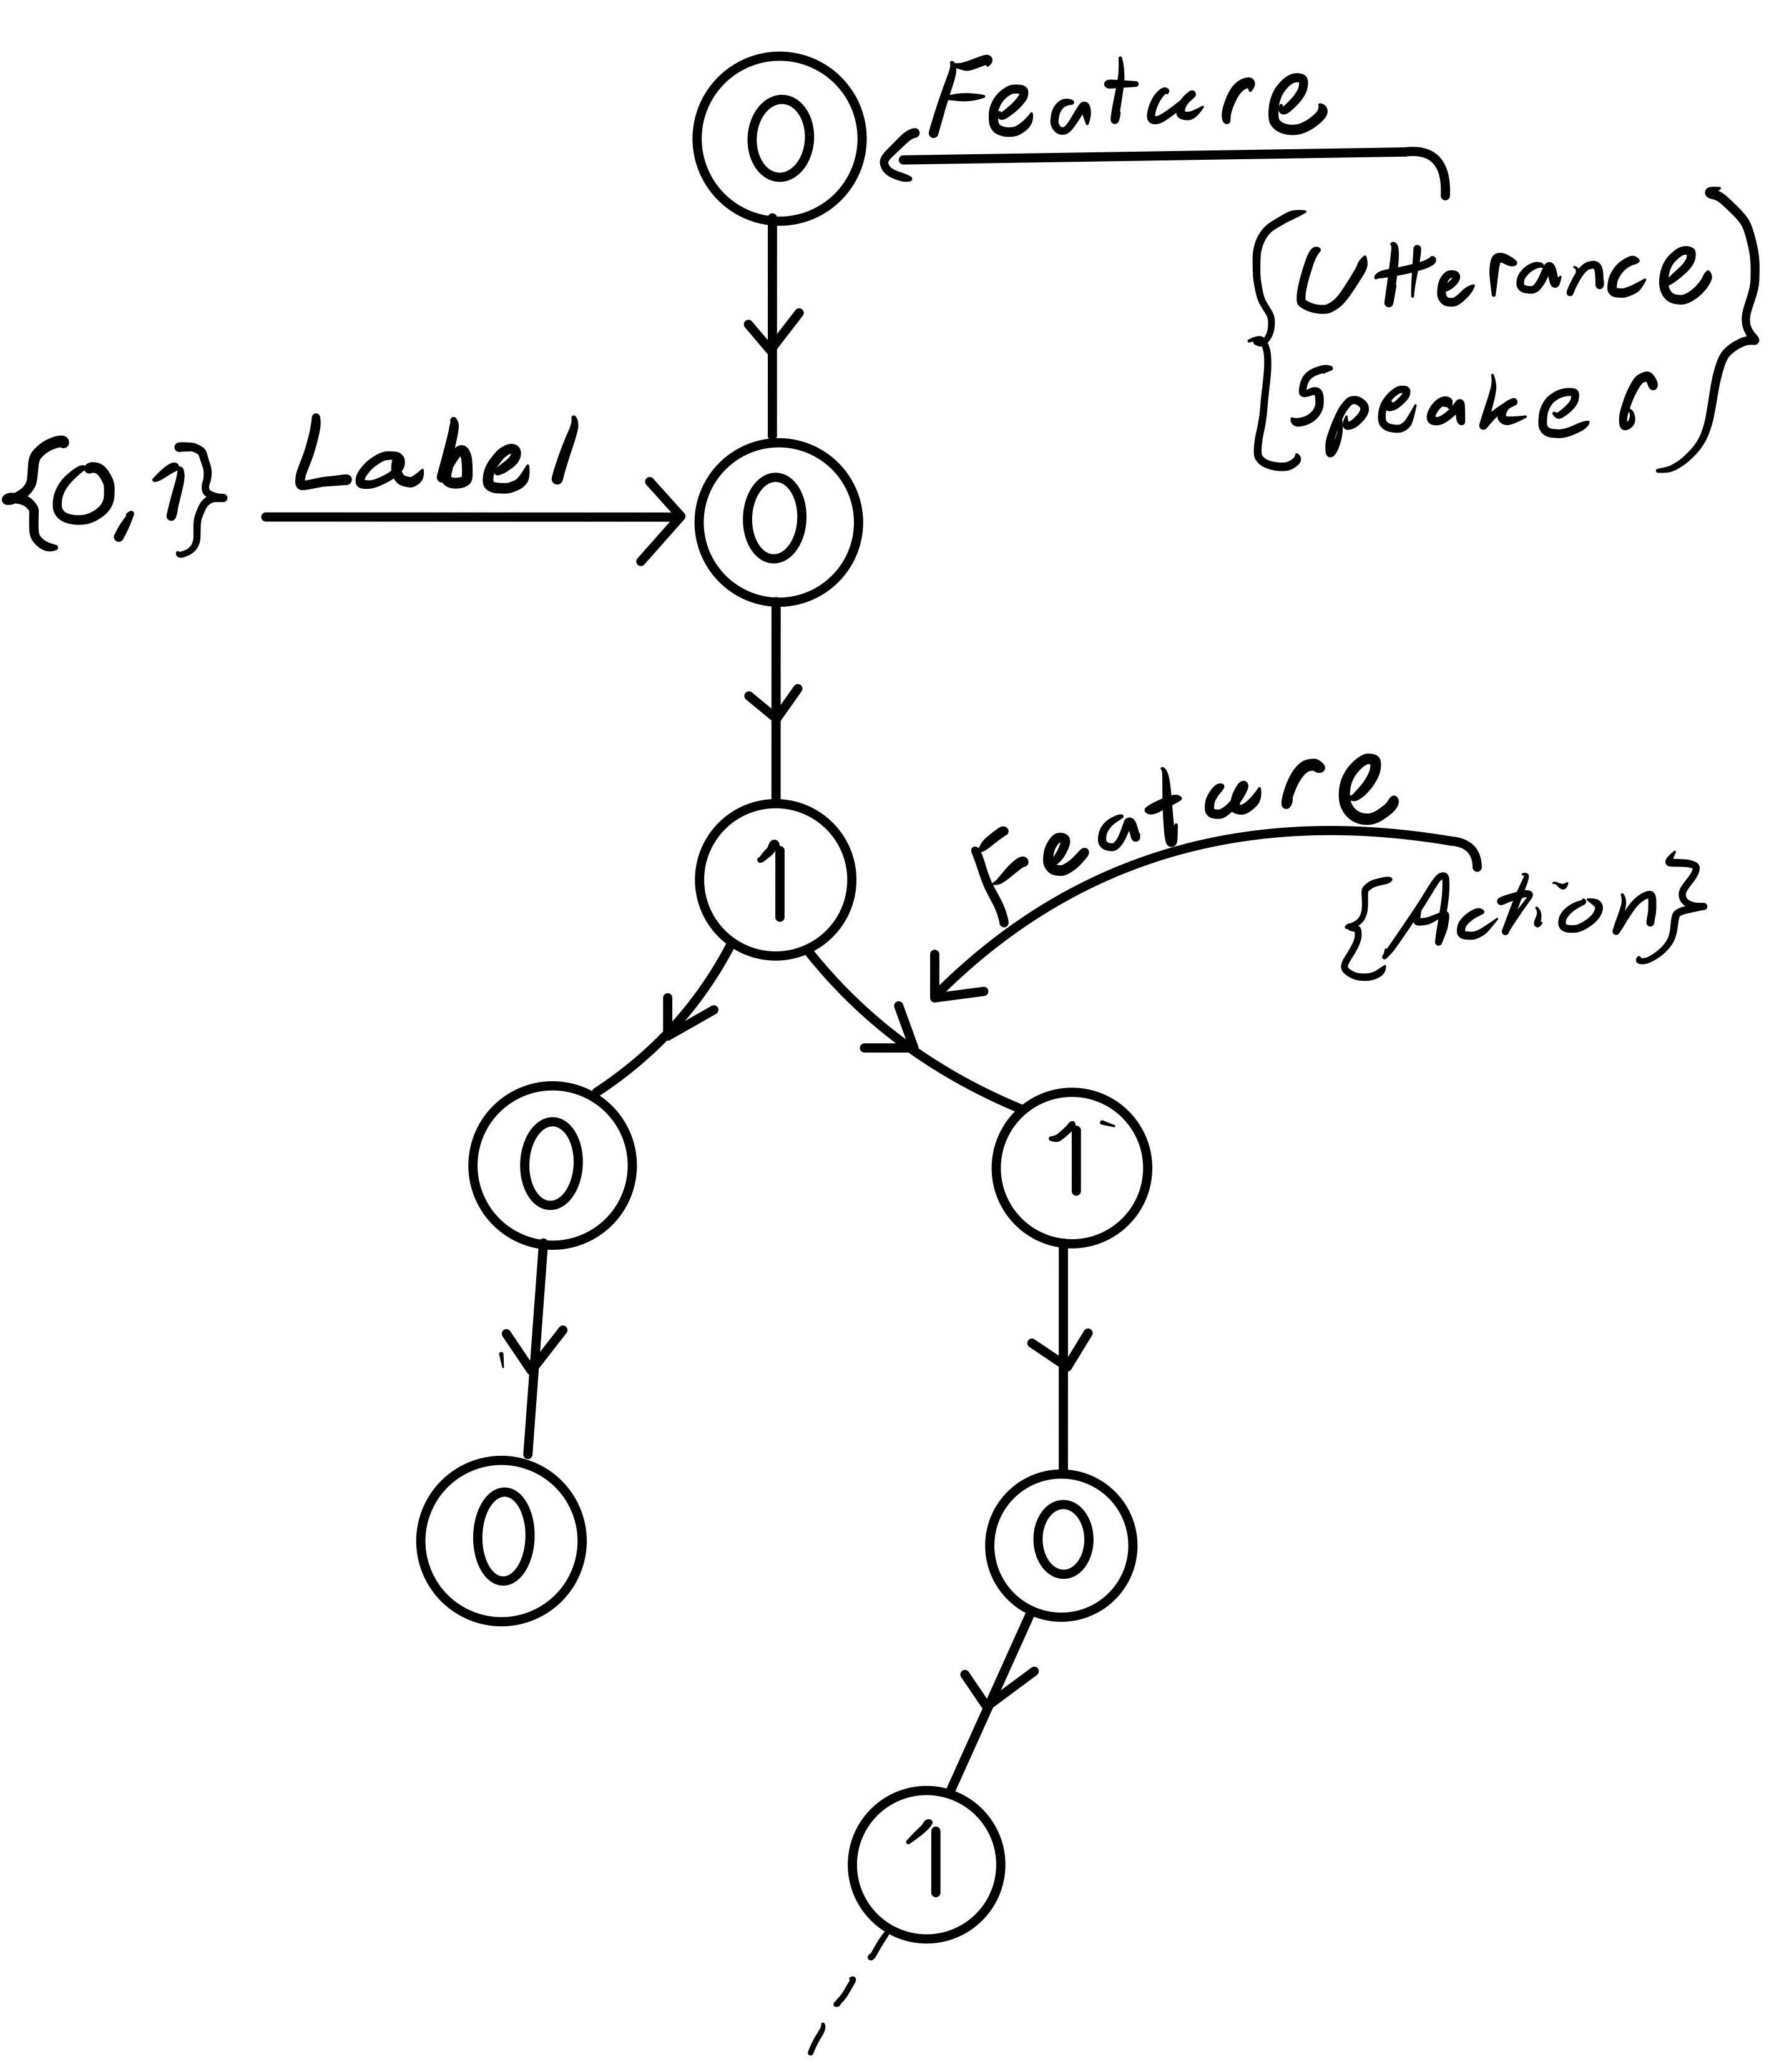 0
Feature
{Utterance
Speaker}
{0,1}
Label
0
1
Feature
{Action}
0
1
0
0
1